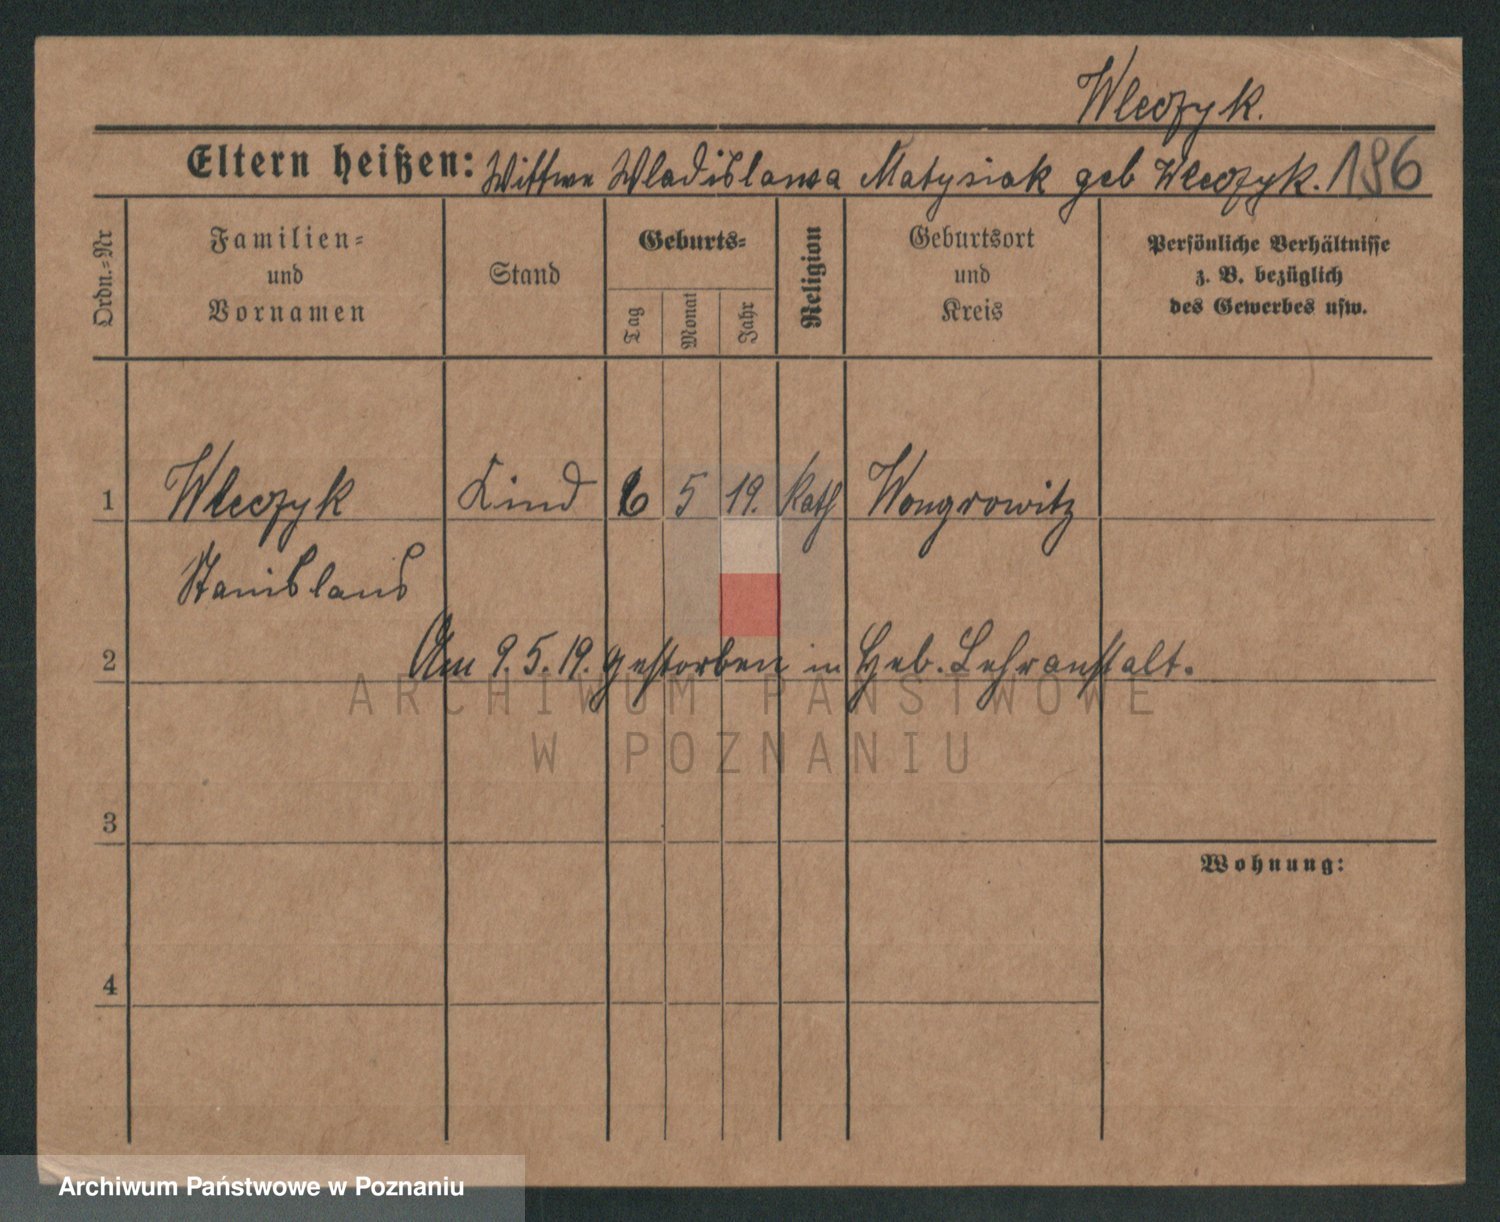 Wleczyk.
Eltern heißen: Wittwe Wladislawa Matysiak geb Wleczyk. 186
Ordn.=Nr
Familien= und Vornamen
Stand
Geburts=
Tag
Monat
Jahr
Religion
Geburtsort und Kreis
Persönliche Verhältnisse
z. B. bezüglich
des Gewerbes usw.
1 Wleczyk Kind 6 5 19. Kath Wongrowitz
Stanislaus
2 Am 9. 5. 19. gestorben in Heb. Lehranstalt.
ARCHIWUM PAŃSTWOWE
W POZNANIU
3
Wohnung:
4
Archiwum Państwowe w Poznaniu